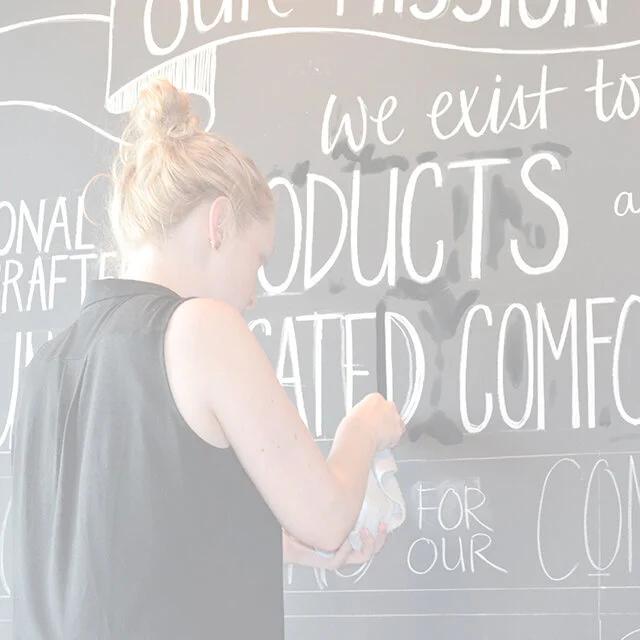 OUR MISSION
we exist to
ONAL ODUCTS a
RAFTE
CATED COMFO
FOR
OUR CON